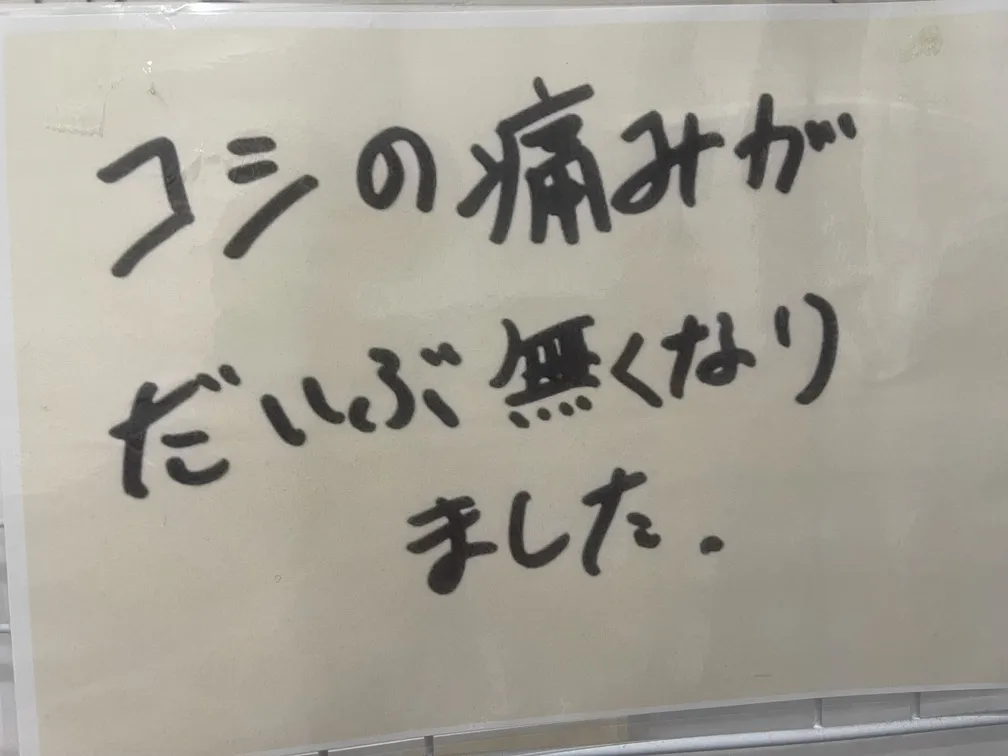 コシの痛みが
だいぶ無くなり
ました.